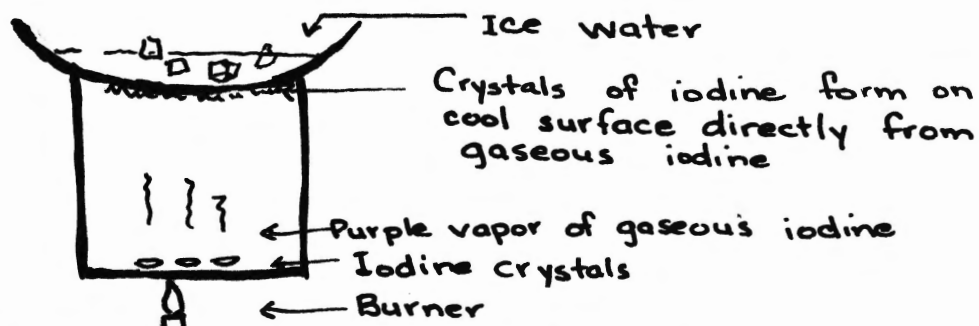 Ice water
Crystals of iodine form on
cool surface directly from
gaseous iodine
Purple vapor of gaseous iodine
Iodine crystals
Burner